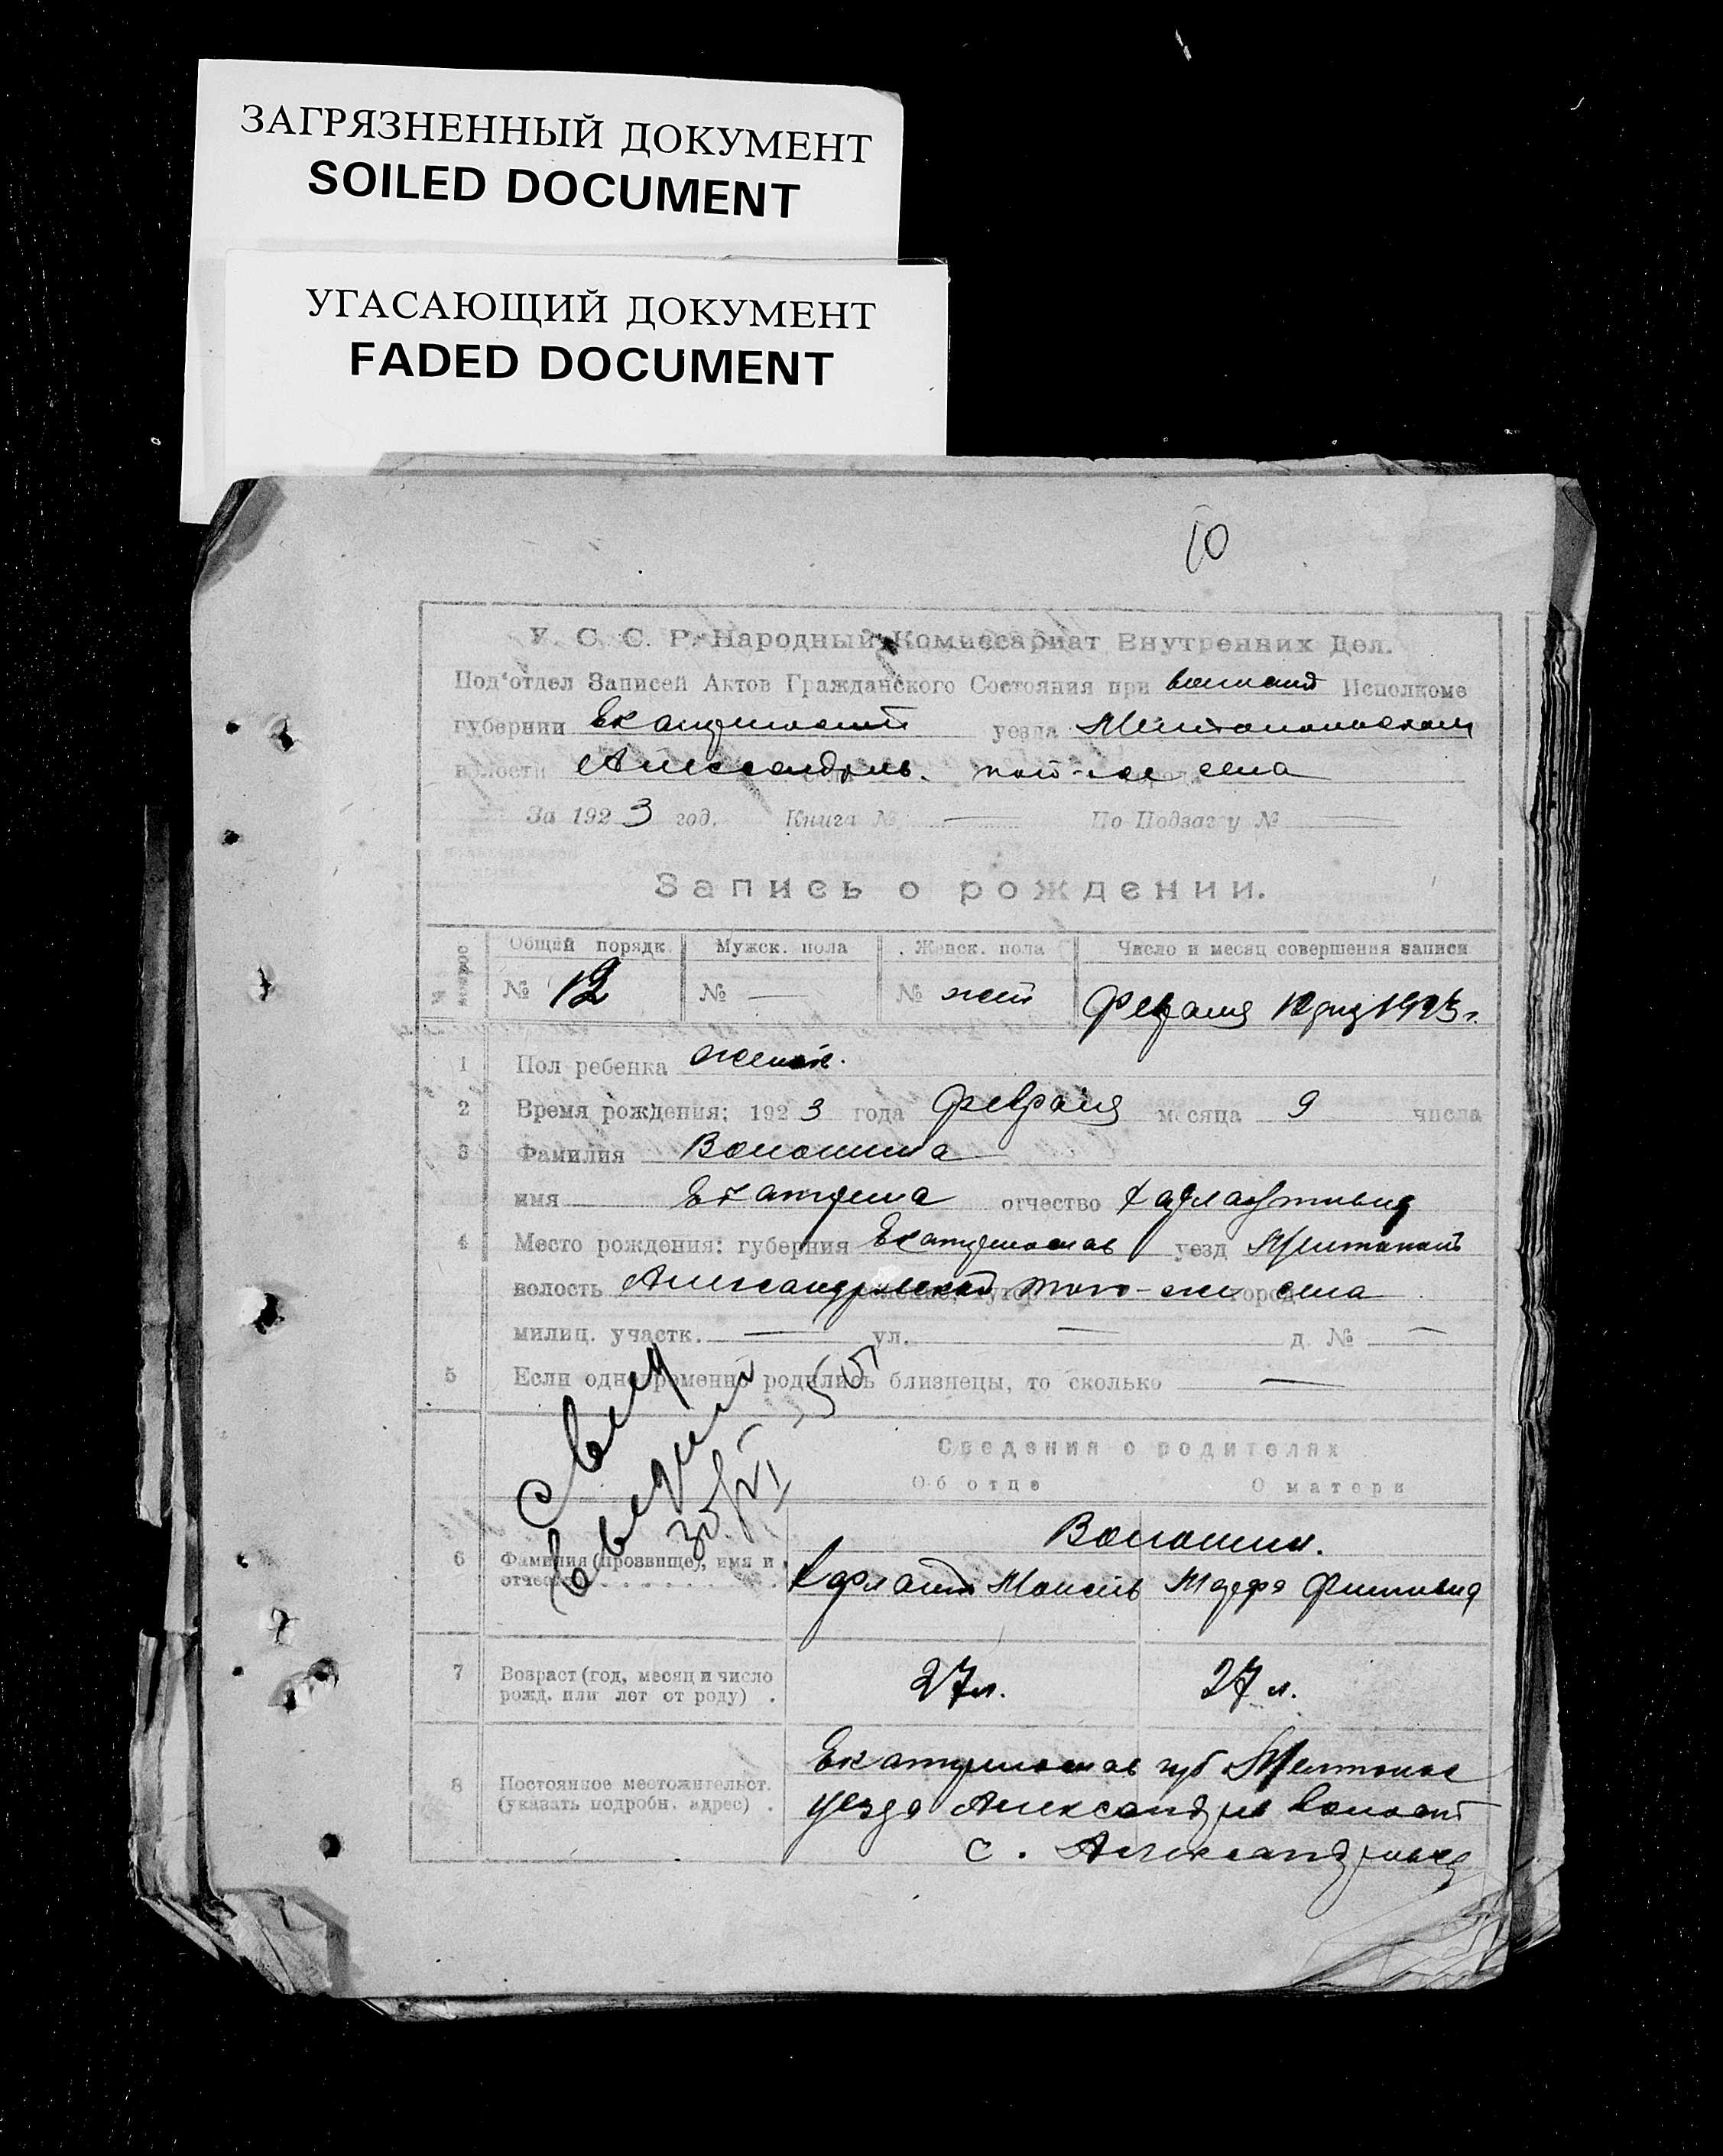 ЗАГРЯЗНЕННЫЙ ДОКУМЕНТ
SOILED DOCUMENT
УГАСАЮЩИЙ ДОКУМЕНТ
FADED DOCUMENT
10
У. С. С. Р. Народный Комиссариат Внутренних Дел.
Под'отдел Записей Актов Гражданского Состояния при Исполкоме
губернии уезда
волости села
За 1923 год. Книга № — По Подзагсу № —
Запись о рождении.
Общий порядк. Мужск. пола Женск. пола Число и месяц совершения записи
№ 12 № — № жен Февраля 12 дня 1923 г.
1 Пол ребенка женск.
2 Время рождения: 1923 года Февраля месяца 9 числа
3 Фамилия Волошина
имя Екатерина отчество
4 Место рождения: губерния Екатеринослав уезд Мелитопол
волость Александровской того-же села
милиц. участк. — ул. — д. № —
5 Если одновременно родились близнецы, то сколько —
Сведения о родителях
Об отце О матери
Волошин.
6 Фамилия (прозвище), имя и отчество
7 Возраст (год, месяц и число рожд. или лет от роду) . 27 л. 27 л.
Екатеринослав губ Мелитопол
8 Постоянное местожительст. (указать подробн. адрес) . уезда Александров волост
с.